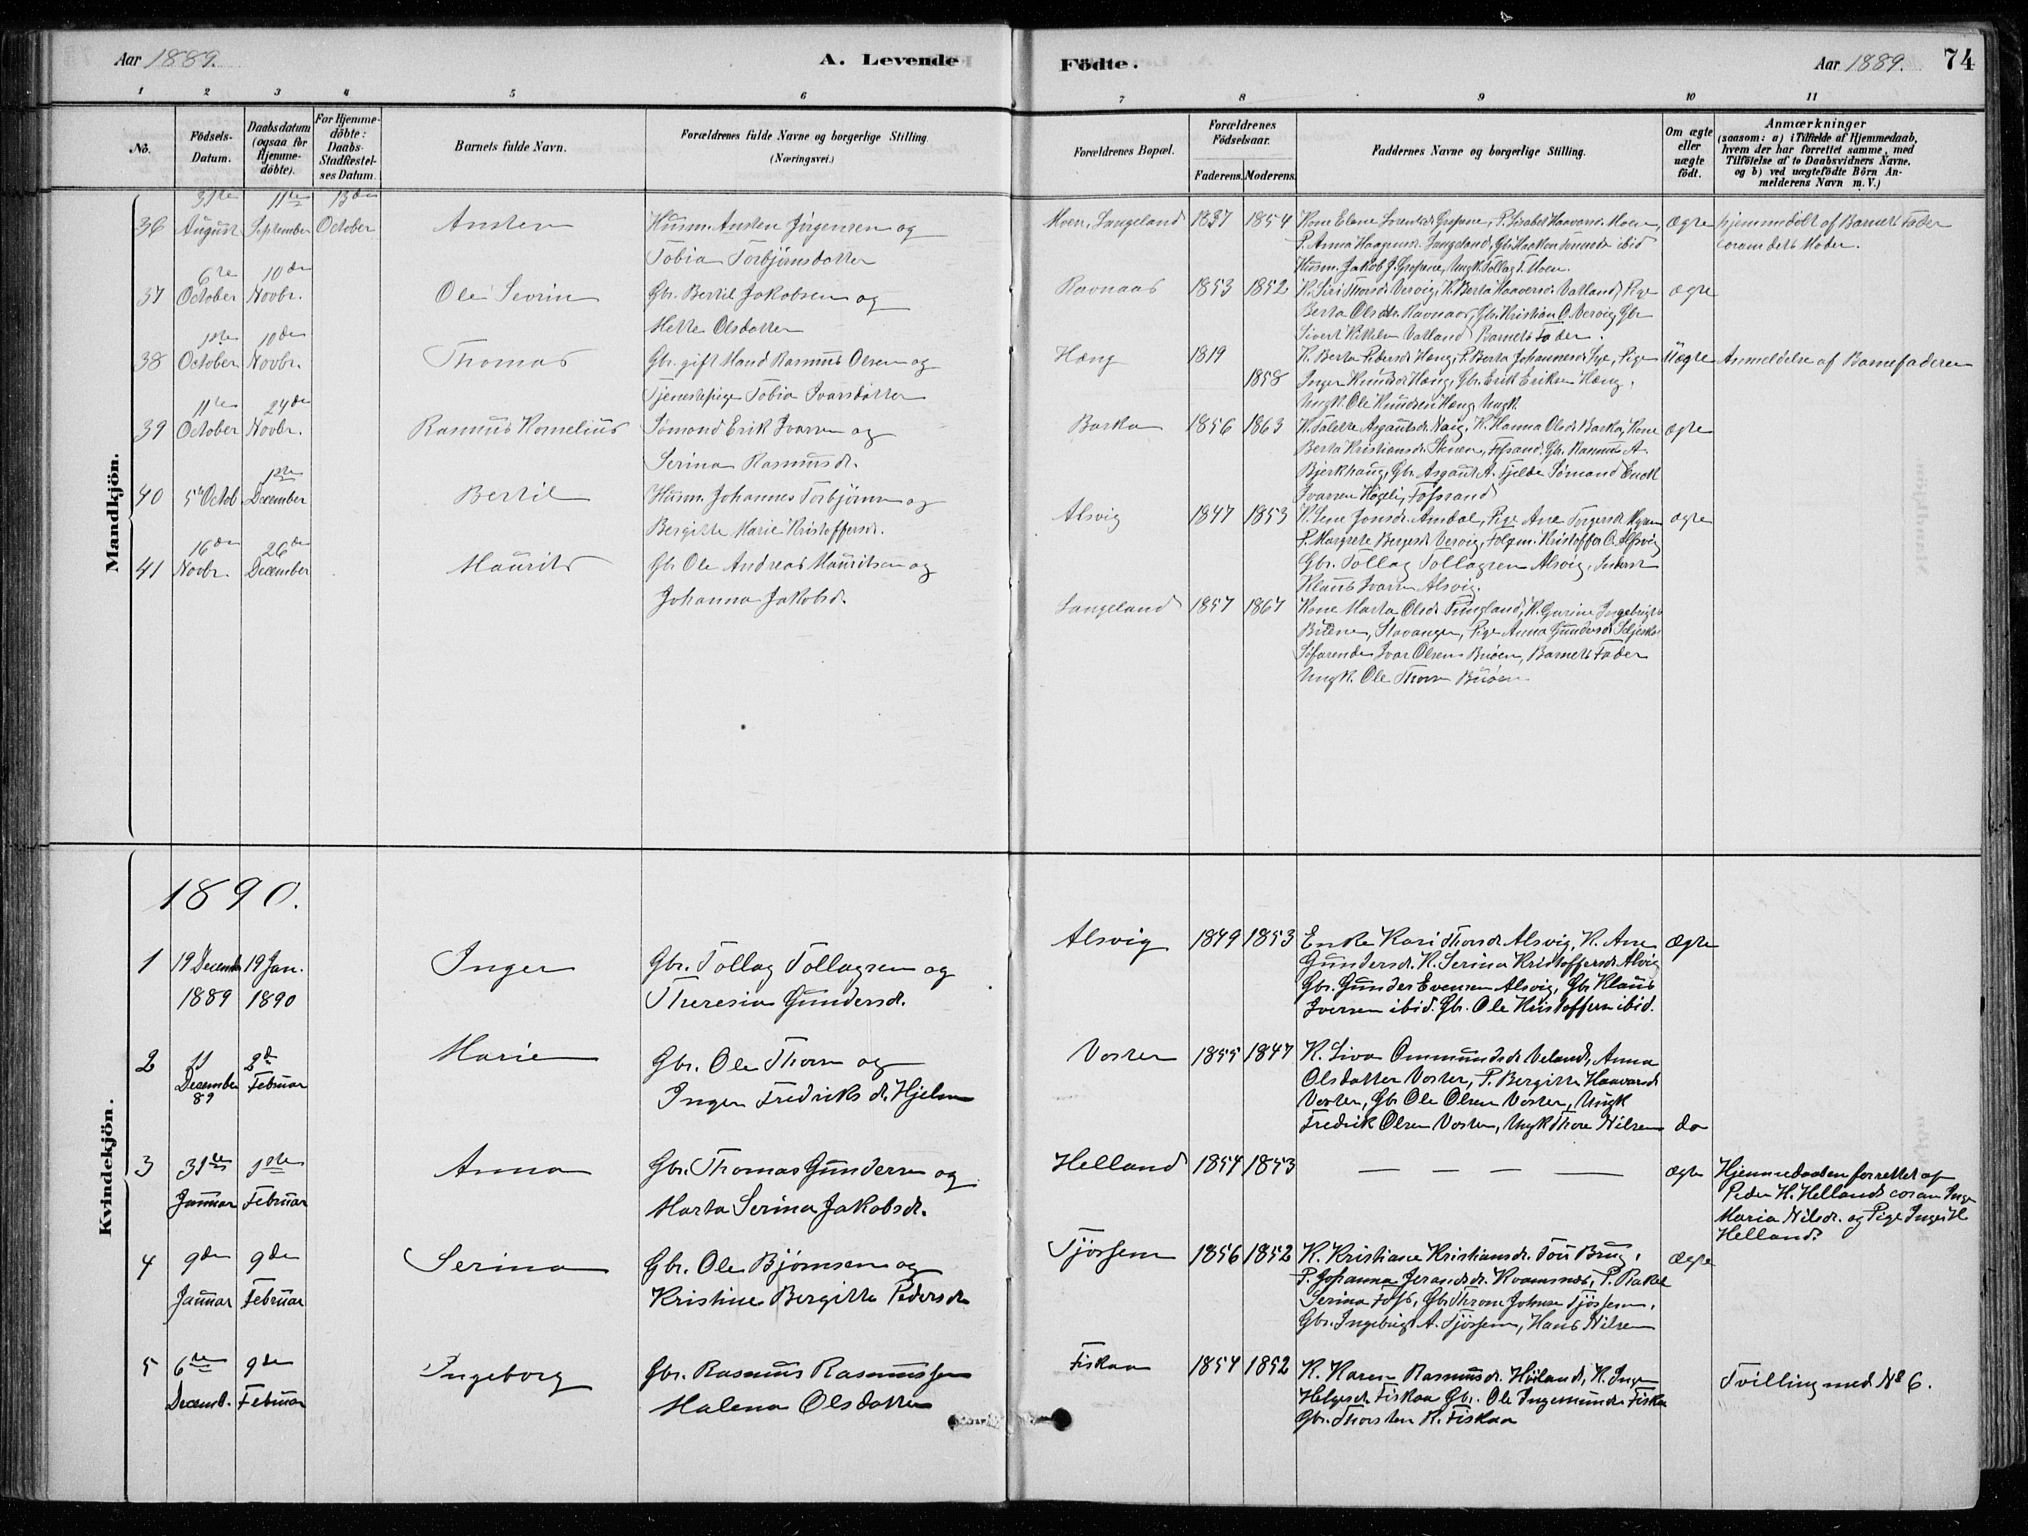 Aar 1889.
A. Levende
Fødte.
Aar 1889.
74
1 2 3 4 5 6 7 8 9 10 11
No.
Födsels-Datum.
Daabsdatum (ogsaa for Hjemme-döbte).
For Hjemme-döbte: Daabs-Stadfestel-ses Datum.
Barnets fulde Navn.
Forældrenes fulde Navne og borgerlige Stilling. (Næringsvei.)
Forældrenes Bopæl.
Forældrenes Födselsaar.
Faderens. Moderens.
Faddernes Navne og borgerlige Stilling.
Om ægte eller uægte födt.
Anmærkninger
(saasom: a) i Tilfælde af Hjemmedaab, hvem der har forrettet samme, med Tilföielse af to Daabsvidners Navne, og b) ved uægtefödte Börn An-melderens Navn m. V.)
Mandkjön.
36 31te August 11te September 13den October Ansten Husm. Ansten Jörgensen og
Tobia Torbjörnsdatter
Moen, Langeland 1837 1854 Kone Elene Lorentsdr Grøsene, P. Lisabet Haavarsd. Moen,
P. Anna Haagensd. Langeland, Gbr. Haakon ibid
Husm. Jakob J. Grøsene, Ungk. Tollag T. Moen.
Ægte Hjemmedöbt af Barnets Fader
coram dets Moder.
37 6te October 10de Novbr. Ole Sevrin Gbr. Bertil Jakobsen og
Mette Olsdatter
Ravnaas 1853 1852 K. Siri Thorsdr Vervig, K. Berta Haaversd. Vatland, Pige
Berta Olsdtr. Ravnaas, Gbr. Kristian O. Vervig, Gbr
Sivert Vatland, Barnets Fader.
ægte
38 1ste October 10de Novbr. Thomas Gbr. gift Mand Rasmus Olsen og
Tjenestepige Tobia Ivarsdatter
Hæng 1819 1858 K. Berta Pedersd. Hæng, P. Berta Johannesd. Pige
Inger Knutsdr Hæng, Gbr. Erik Eriksen Hæng,
Ungk. Ole Knudsen Hæng, Ungk.
Uægte Anmeldelse af Barnefaderen
39 11te October 24de Novbr. Rasmus Kornelius Sømand Erik Ivarsen og
Serina Rasmusdr.
Barka 1856 1863 K. Talette Asgautsdr. Naig, K. Hanna Olsdr Barka, Kone
Berta Kristiansdr. Fossand, Gbr. Rasmus A.
Bjerkhaug, Gbr. Asgaut A. Fjelde Sømand Enok
Ivarsen Høgeli, Fossand
ægte
40 5te Octob. 1ste December Bertil Husm. Johannes Torbjörns og
Bergitte Marie Kristoffersdr.
Alsvig 1847 1853 K. Lene Jonsdr. Amdal, Pige Ane Torgersdr
P. Margrete Bergesdr Vervig, Kristoffer O. Alsvig
Gbr. Tollag Tollagsen Alsvig,
Klaus Ivarsen Alsvig.
ægte
41 16de Novbr. 26de December Maurits Gbr. Ole Andreas Mauritsen og
Johanna Jakobsd.
Langeland 1857 1867 Kone Marta Olsdr Tungland, K. Gurine Ingebrigts
Stavanger, Pige Anna Gundersdr
Søfarende Ivar Olsen Buöen, Barnets Fader
Ungk. Ole Thorsn Buöen
Kvindekjön.
1890.
1 19 Decemb 1889 19 Jan. 1890 Inger Gbr. Tollag Tollagsen og
Theresia Gundersdr.
Alsvig 1849 1853 Enke Kari Thorsdr Alsvig, K. Ane
Gundersdr. K. Serina Kristoffersdr Alsvig
Gbr. Gunder Evensen Alsvig, Gbr Klaus
Iversen ibid. Gbr. Ole Kristoffersn ibid.
Ægte
2 11 December 89 2de Februar Marie Gbr. Ole Thorsn og
Inger Fredriksdr. Hjelm
Voster 1855 1847 K. Siva Ommundsdr. Veland, Anna
Olsdatter Voster, P. Bergitte Haavarsd
Voster, Gbr Ole Olsen Voster, Ungk
Fredrik Olsen Voster, Ungk Thore Nilsen do
3 31te Januar 1ste Februar Anna Gbr. Thomas Gundersn og
Marta Serina Jakobsdr.
Helland 1854 1853 — — — —
ægte Hjemmedaaben forrettet af
Peder H. Helland coram Inger
Maria Nilsdr. og Pige Inger H
Helland.
4 9de Januar 9de Februar Serina Gbr. Ole Bjørnsen og
Kristine Bergitte Pedersdr
Tjössem 1856 1852 K. Kristiane Kristiansdr. Tou Brug,
P. Johanna Jerandsdr. Kvamsnes, P. Rakel
Serina Foss, Gbr. Throne Johnsn Tjössem,
Gbr. Ingebrigt A. Tjössem, Hans Nilsen
Ægte
5 6te Decemb. 9de Februar Ingeborg Gbr. Rasmus Rasmussen
Malena Olsdatter
Fiskaa 1854 1852 K. Karen Rasmusdr. Høiland, K. Inger
Helgesdr. Fiskaa Gbr. Ole Ingemundsn Fiskaa
Gbr. Thorsten R. Fiskaa
Tvilling med No 6.